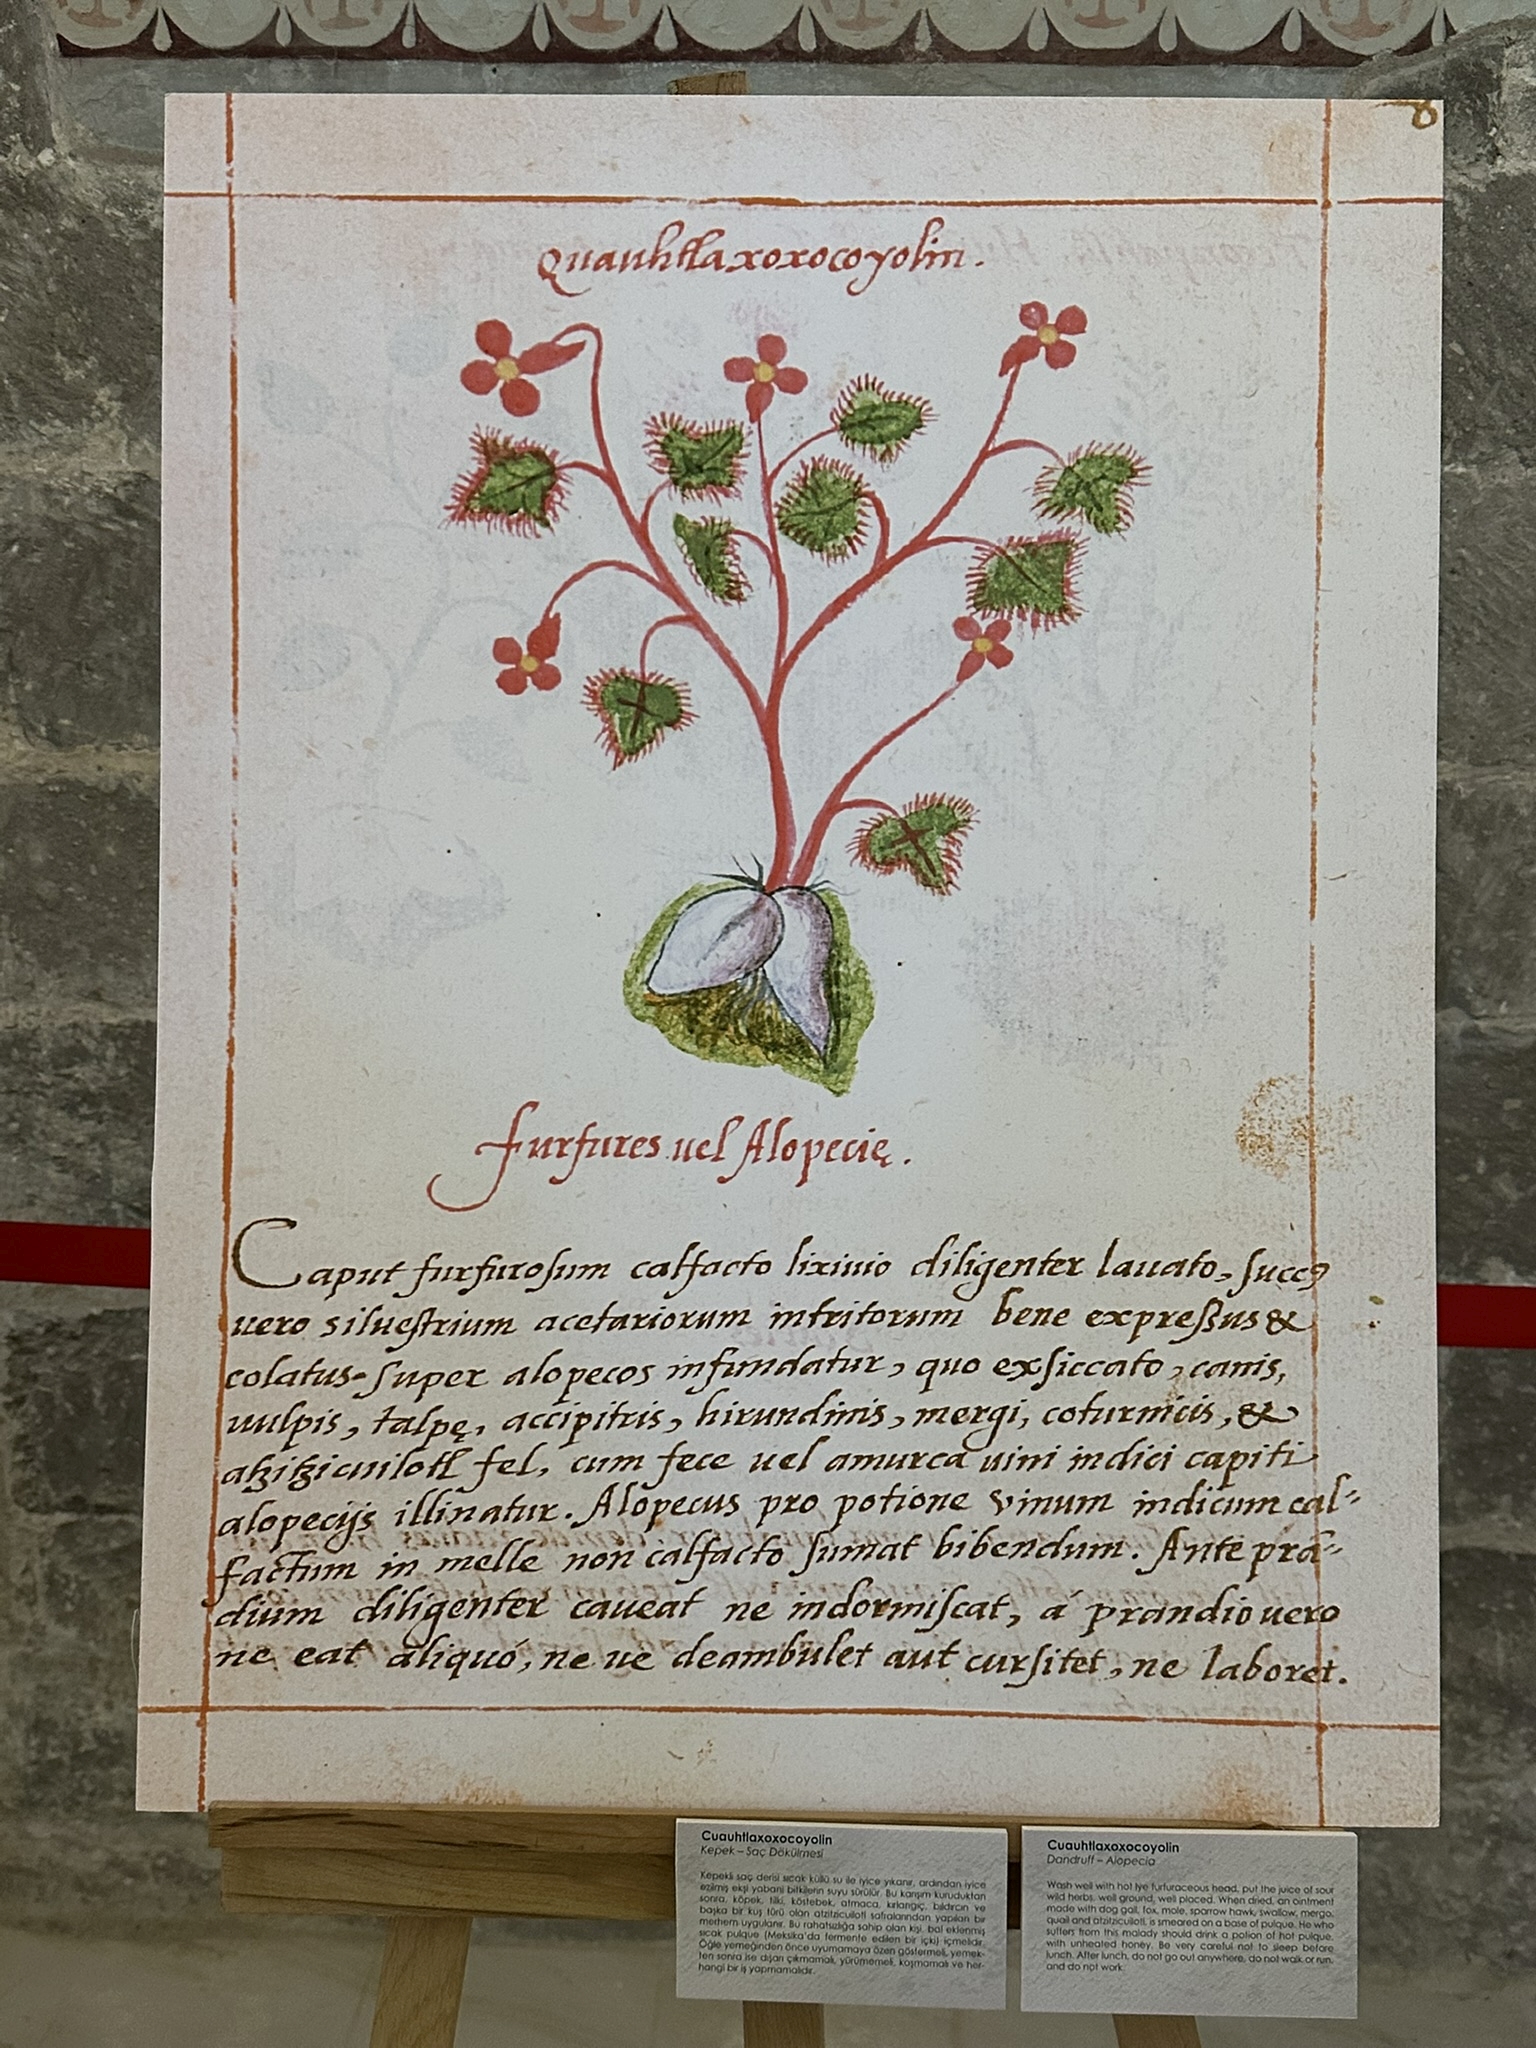 8
Quauhtlaxoxocoyolin.
Furfures uel Alopecię.
Caput furfurosum calfacto lixiuio diligenter lauato, succꝯ
uero siluestrium acetariorum intritorum bene expreßus &
colatus super alopecos infundatur, quo exsiccato, canis,
uulpis, talpę, accipitris, hirundinis, mergi, coturnicis, &
atzitzicuilotl fel, cum fece uel amurca uini indici capiti
alopecijs illinatur. Alopecus pro potione vinum indicum cal-
factum in melle non calfacto sumat bibendum. Ante pran-
dium diligenter caveat ne indormiscat, á prandio uero
ne eat aliquó, ne ve deambulet aut cursitet, ne laboret.
Cuauhtlaxoxocoyolin
Kepek – Saç Dökülmesi
Kepekli saç derisi sıcak küllü su ile iyice yıkanır, ardından iyice
ezilmiş ekşi yabani bitkilerin suyu sürülür. Bu karışım kuruduktan
sonra, köpek, tilki, köstebek, atmaca, kırlangıç, bıldırcın ve
başka bir kuş türü olan atzitzicuilotl safralarından yapılan bir
merhem uygulanır. Bu rahatsızlığa sahip olan kişi, bal eklenmiş
sıcak pulque (Meksika'da fermente edilen bir içki) içmelidir.
Öğle yemeğinden önce uyumamaya özen göstermeli, yemek-
ten sonra ise dışarı çıkmamalı, yürümemeli, koşmamalı ve her-
hangi bir iş yapmamalıdır.
Cuauhtlaxoxocoyolin
Dandruff – Alopecia
Wash well with hot lye furfuraceous head, put the juice of sour
wild herbs, well ground, well placed. When dried, an ointment
made with dog gall, fox, mole, sparrow hawk, swallow, mergo,
quail and atzitzicuilotl, is smeared on a base of pulque. He who
suffers from this malady should drink a potion of hot pulque,
with unheated honey. Be very careful not to sleep before
lunch. After lunch, do not go out anywhere, do not walk or run,
and do not work.